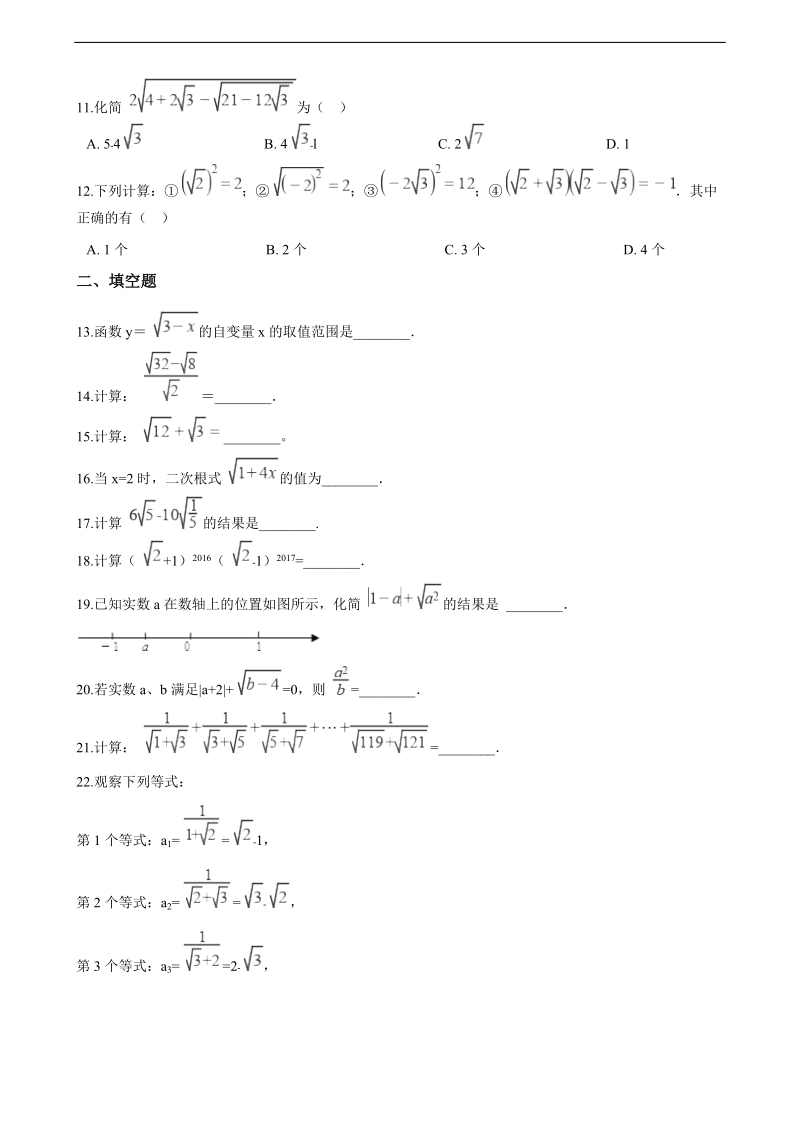 11.化简 2√(4+2√3-√(21-12√3)) 为（ ）
A. 5-4√3 B. 4√3-1 C. 2√7 D. 1
12.下列计算：①(√2)²=2；②√(-2)²=2；③(-2√3)²=12；④(√2+√3)(√2-√3)=-1．其中
正确的有（ ）
A. 1 个 B. 2 个 C. 3 个 D. 4 个
二、填空题
13.函数 y＝ √(3-x) 的自变量 x 的取值范围是________．
14.计算： (√32-√8)/√2 ＝________．
15.计算： √12+√3= ________。
16.当 x=2 时，二次根式 √(1+4x) 的值为________．
17.计算 6√5-10√(1/5) 的结果是________.
18.计算（ √2+1）²⁰¹⁶（ √2-1）²⁰¹⁷=________．
19.已知实数 a 在数轴上的位置如图所示，化简 |1-a|+√a² 的结果是 ________．
-1 a 0 1
20.若实数 a、b 满足|a+2|+√(b-4)=0，则 a²/b =________．
21.计算： 1/(√1+√3)+1/(√3+√5)+1/(√5+√7)+⋯+1/(√119+√121) =________．
22.观察下列等式：
第 1 个等式：a₁= 1/(1+√2) = √2-1，
第 2 个等式：a₂= 1/(√2+√3) = √3-√2，
第 3 个等式：a₃= 1/(√3+2) =2-√3，